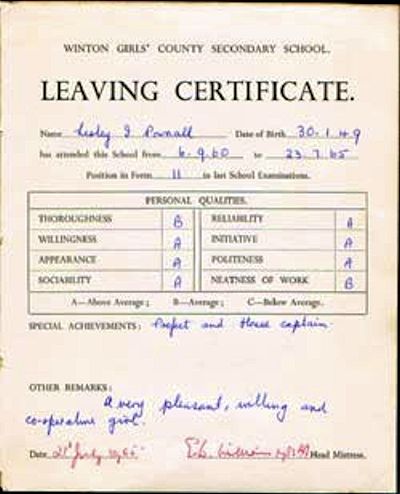 WINTON GIRLS' COUNTY SECONDARY SCHOOL.
LEAVING CERTIFICATE.
Name Lesley J Pownall Date of Birth 30.1.49
has attended this School from 6.9.60 to 23.7.65
Position in Form 11 in last School Examinations.
PERSONAL QUALITIES.
THOROUGHNESS B RELIABILITY A
WILLINGNESS A INITIATIVE A
APPEARANCE A POLITENESS A
SOCIABILITY A NEATNESS OF WORK B
A—Above Average; B—Average; C—Below Average.
SPECIAL ACHIEVEMENTS: Prefect and House captain.
OTHER REMARKS:
A very pleasant, willing and
co-operative girl.
Date 21st July 1965 Head Mistress.